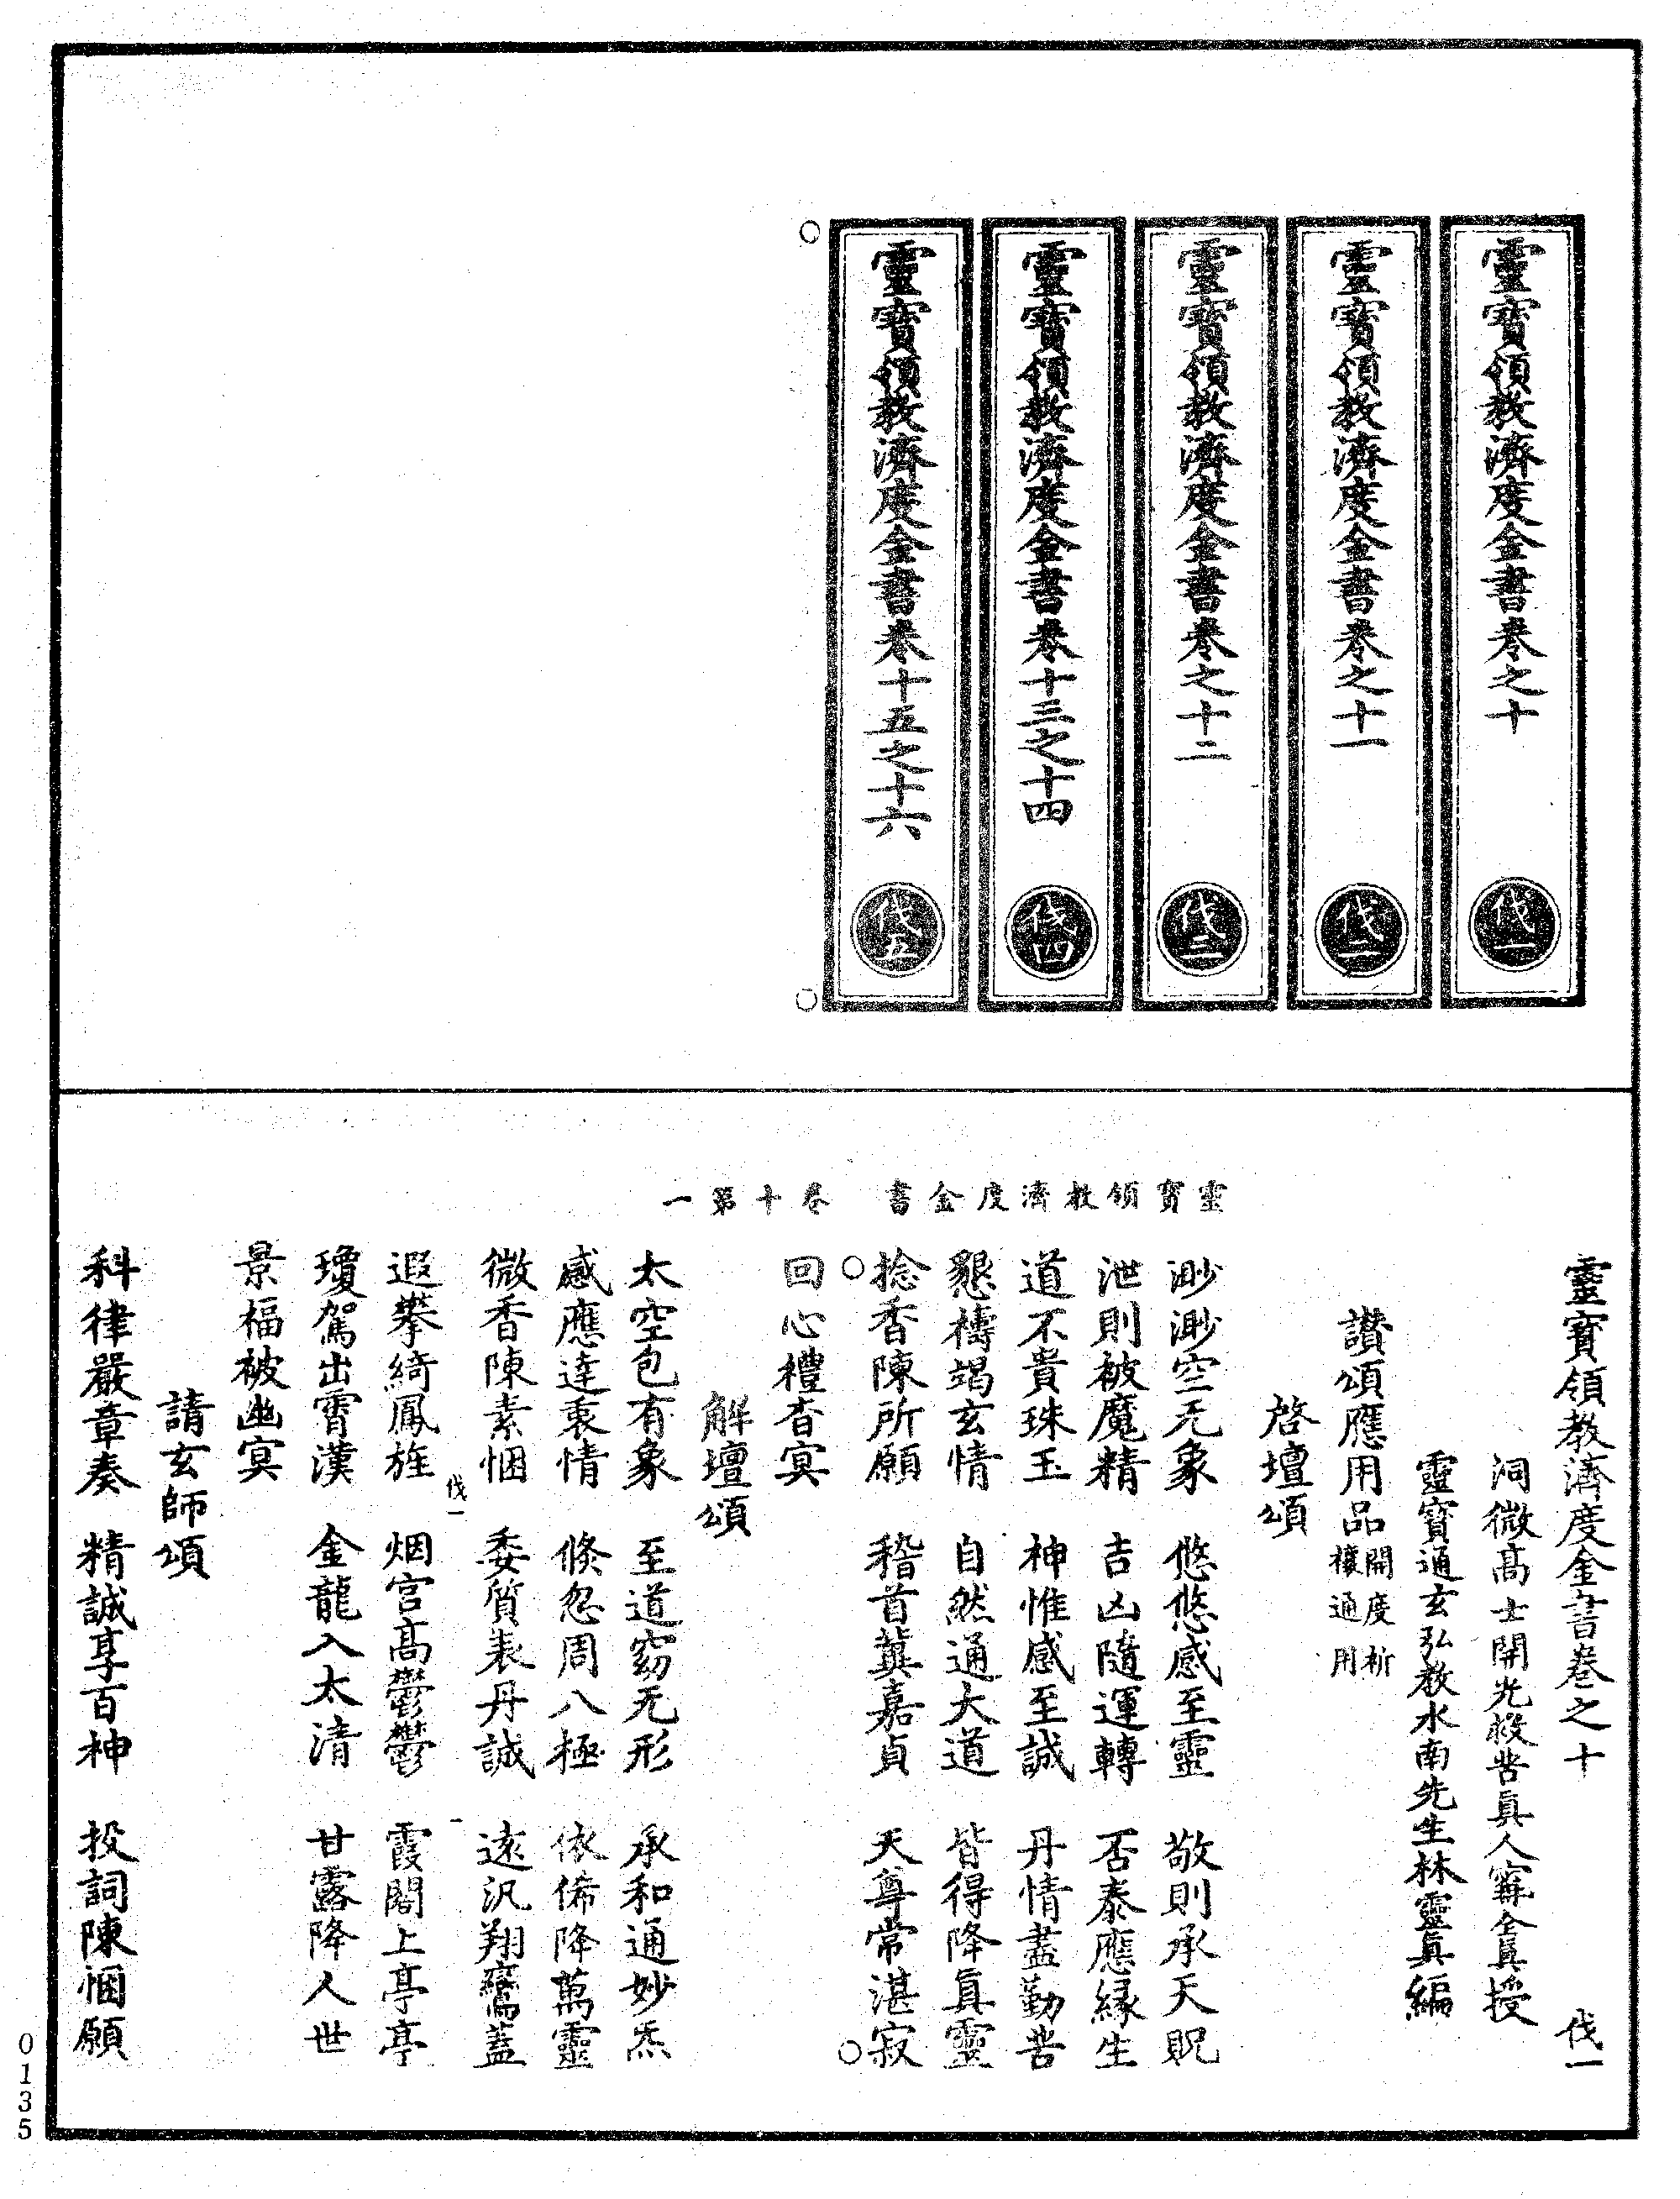 靈寶領教濟度金書卷之十 伐一
靈寶領教濟度金書卷之十一 伐二
靈寶領教濟度金書卷之十二 伐三
靈寶領教濟度金書卷十三之十四 伐四
靈寶領教濟度金書卷十五之十六 伐五
靈寶領教濟度金書 卷十第一
靈寶領教濟度金書卷之十 伐一
洞微高士開光救苦眞人甯全眞授
靈寶通玄弘教水南先生林靈眞編
讃頌應用品開度祈禳通用
啓壇頌
渺渺空无象 悠悠感至靈 敬則承天貺
泄則被魔精 吉凶隨運轉 否泰應緣生
道不貴珠玉 神惟感至誠 丹情盡勤苦
懇禱竭玄情 自然通大道 皆得降眞靈
捻香陳所願 稽首冀嘉貞 天尊常湛寂
回心禮杳冥
解壇頌
太空包有象 至道窈无形 承和通妙炁
感應達衷情 倐忽周八極 依俙降萬靈
微香陳素悃 委質表丹誠 遠汎翔鸞蓋
遐攀綺鳳旌 烟宫高鬱鬱 霞閣上亭亭
伐一 一
瓊駕出霄漢 金龍入太清 甘露降人世
景福被幽冥
請玄師頌
科律嚴章奏 精誠享百神 投詞陳悃願
0135